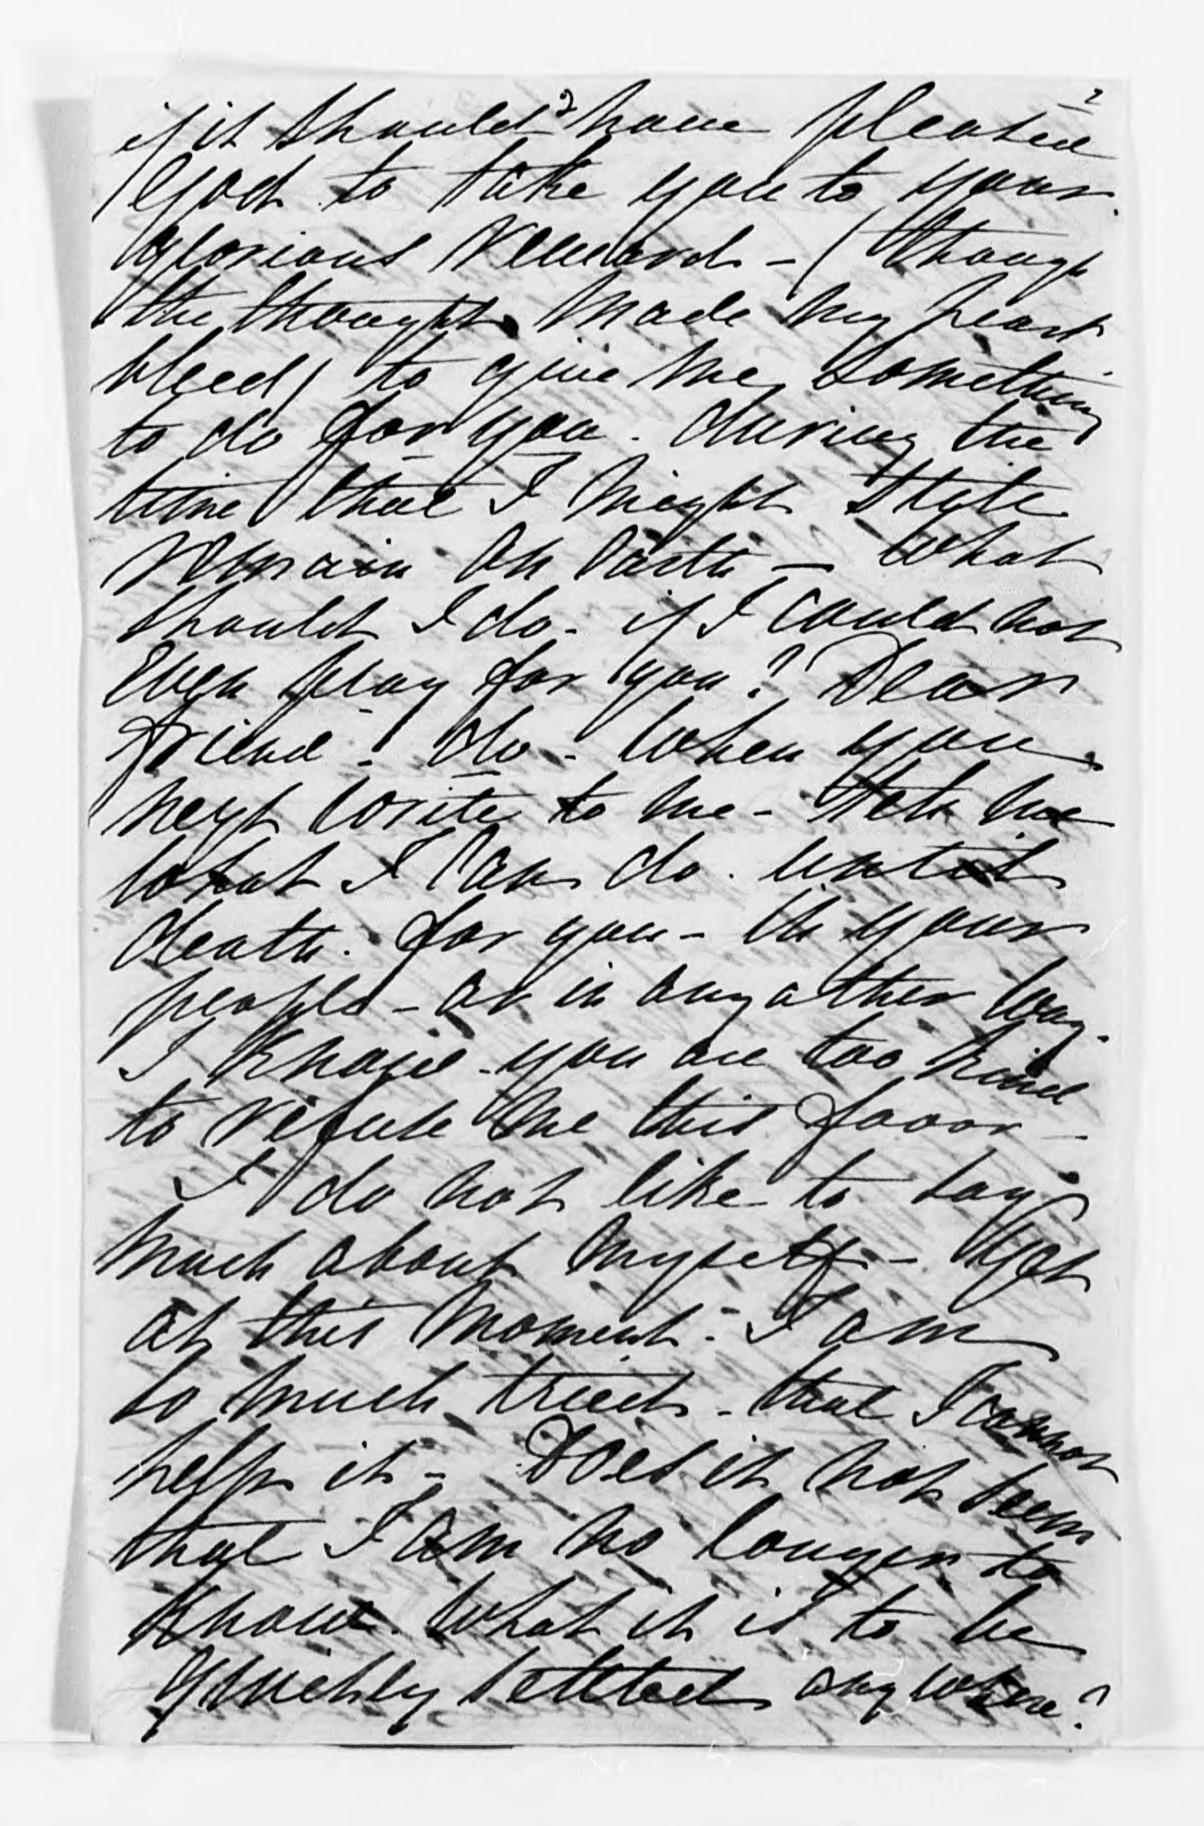 2 2
if it should have pleased
God to take you to your
glorious reward - (though
the thought made my heart
bleed) to give me something
to do for you. during the
time that I might still
remain on earth - What
should I do - if I could not
even pray for you? Dear
friend - do - when you
next write to me - tell me
what I can do. until
death. for you - in your
people - or in any other way.
I know you are too kind
to refuse me this favor -
I do not like to say
much about myself - Yet
at this moment - I am
so much tried - that I cannot
help it - Does it not seem
that I am no longer to
know. what it is to be
quickly settled any where?